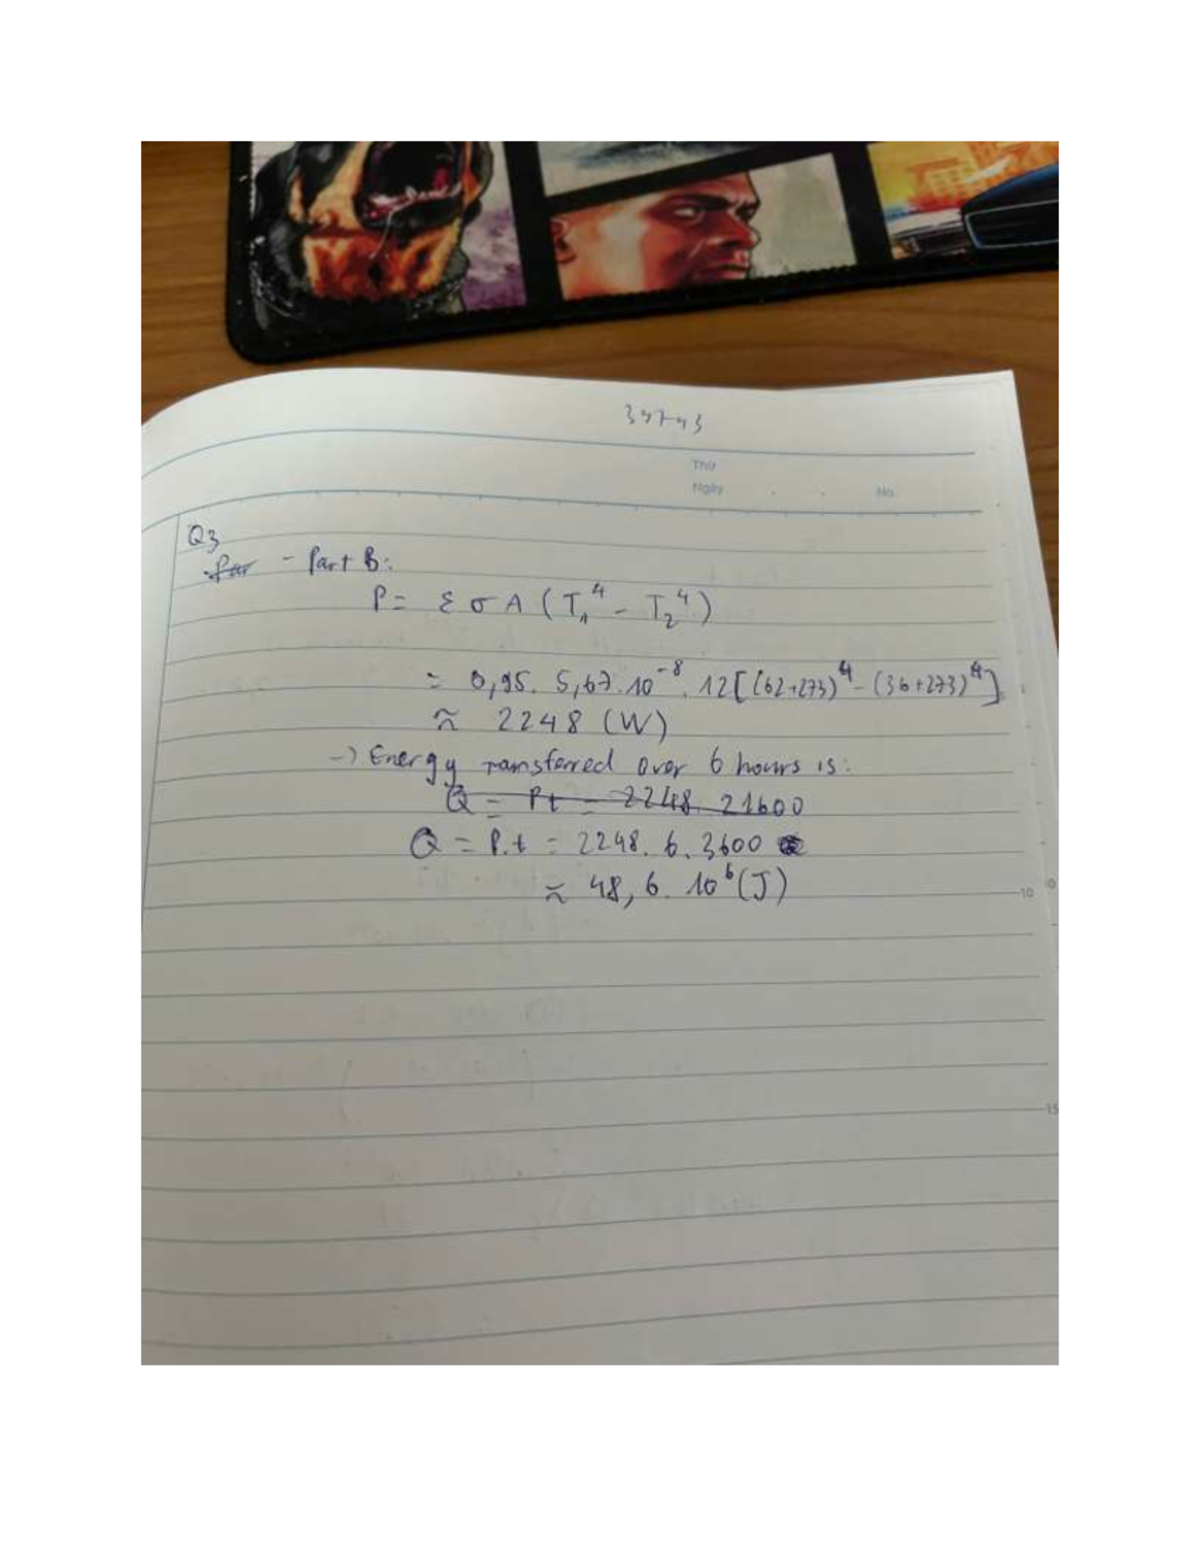 34743
Thứ
Ngày . . No.
Q3
Par - Part B:
P = ε σ A (T₁⁴ - T₂⁴)
= 0,95. 5,67.10⁻⁸. 12[(62+273)⁴ - (36+273)⁴]
≈ 2248 (W)
-> Energy transferred over 6 hours is:
Q = Pt = 2248. 21600
Q = P.t = 2248. 6. 3600
≈ 48,6. 10⁶ (J)
10
15